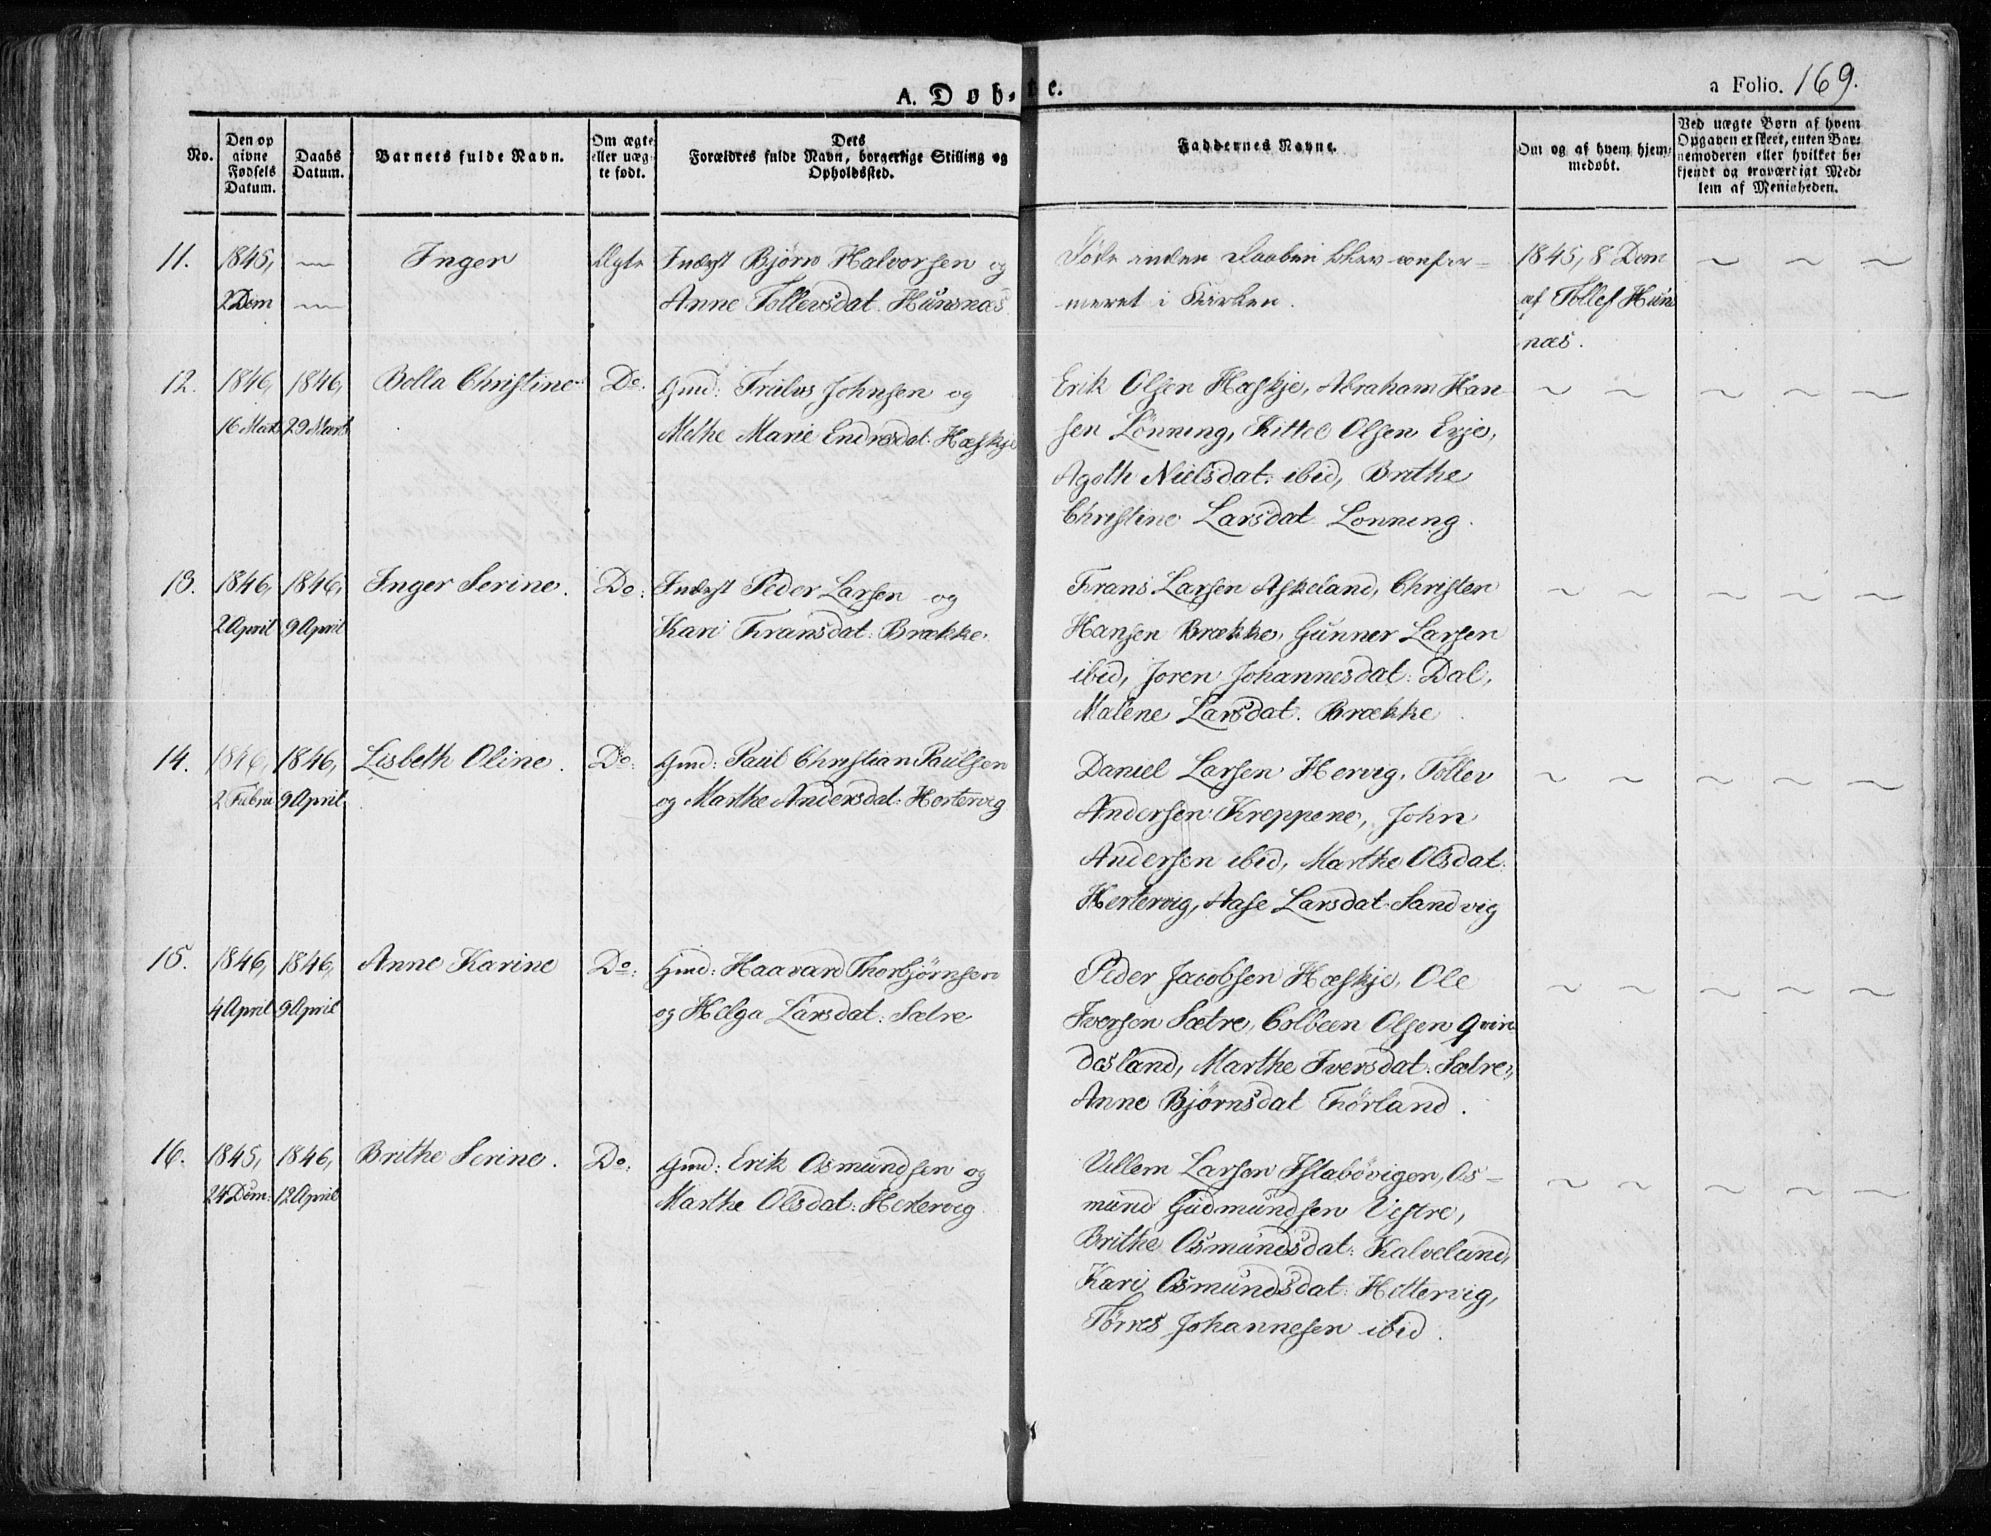 A. Døb-te.
a Folio. 169.
No.
Den op
givne
Fødsels
Datum.
Daabs
Datum.
Barnets fulde Navn.
Om ægte
eller uæg-
te født.
Dets
Forældres fulde Navn, borgerlige Stilling og
Opholdssted.
Faddernes Navne.
Om og af hvem hjem-
medøbt.
Ved uægte Børn af hvem
Opgaven er skeet, enten Bar-
nemoderen eller hvilket be-
kjendt og troværdigt Med-
lem af Menigheden.
11.
1845,
2 Dem
Inger
Ægte
Inderst Bjørn Halvorsen og
Anne Tollevsdat. Hunsnæs
Døde inden Daaben blev confir-
meret i Kirken.
1845, 8 Dem
af Tollef Huns
næs.
12.
1846,
16 Mart
1846,
29 Marts
Bolla Christine
Do.
Gmd: Truls Johnsen og
Methe Marie Endresdat: Hæskje
Erik Olsen Hæskje, Abraham Han-
sen Lønning, Kittel Olsen Erje,
Agoth Nielsdat: ibid, Brithe
Christine Larsdat Lønning.
13.
1846,
2 April
1846,
9 April
Inger Serine.
Do:
Inderst Peder Larsen og
Kari Fransdat: Brække.
Frans Larsen Askeland, Christen
Hansen Brække, Gunner Larsen
ibid, Joren Johannesdat: Dal,
Malene Larsdat. Brække
14.
1846,
2 Febru
1846,
9 April
Lisbeth Oline.
Do:
Gmd: Paul Christian Paulsen
og Marthe Andersdat: Hertervig
Daniel Larsen Hervig, Tollev
Andersen Kreppene, John
Andersen ibid, Marthe Olsdat.
Hertervig, Aase Larsdat Sandvig
15.
1846,
4 April
1846,
9 April
Anne Karine
Do:
Gmd: Haavard Thorbjørnsen
og Helga Larsdat: Sætre
Peder Jacobsen Hæskje, Ole
Iversen Sætre, Colbeen Olsen Qvin
desland, Marthe Iversdat: Sætre,
Anne Bjørnsdat Tørland.
16.
1845,
24 Dem:
1846,
12 April
Brithe Serine.
Do:
Gmd: Erik Osmundsen og
Marthe Olsdat: Hertervig
Villem Larsen Islabøvigen, Os-
mund Gudmundsen Vestre,
Brithe Osmundsdat: Kalveland,
Kari Osmundsdat: Hettervig,
Tørres Johannesen ibid.